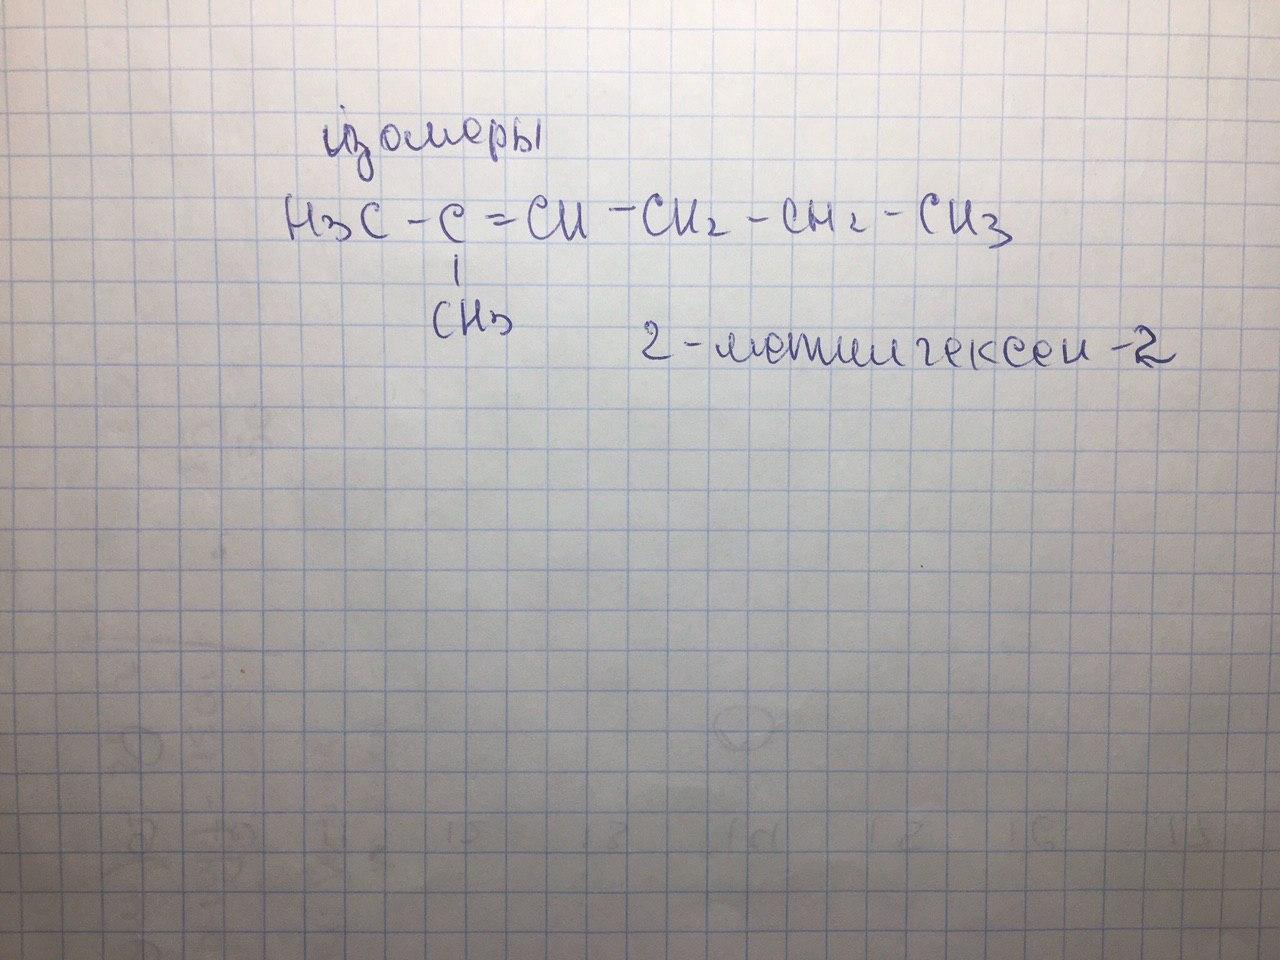 изомеры
H3C - C = CH - CH2 - CH2 - CH3
|
CH3
2-метилгексен-2